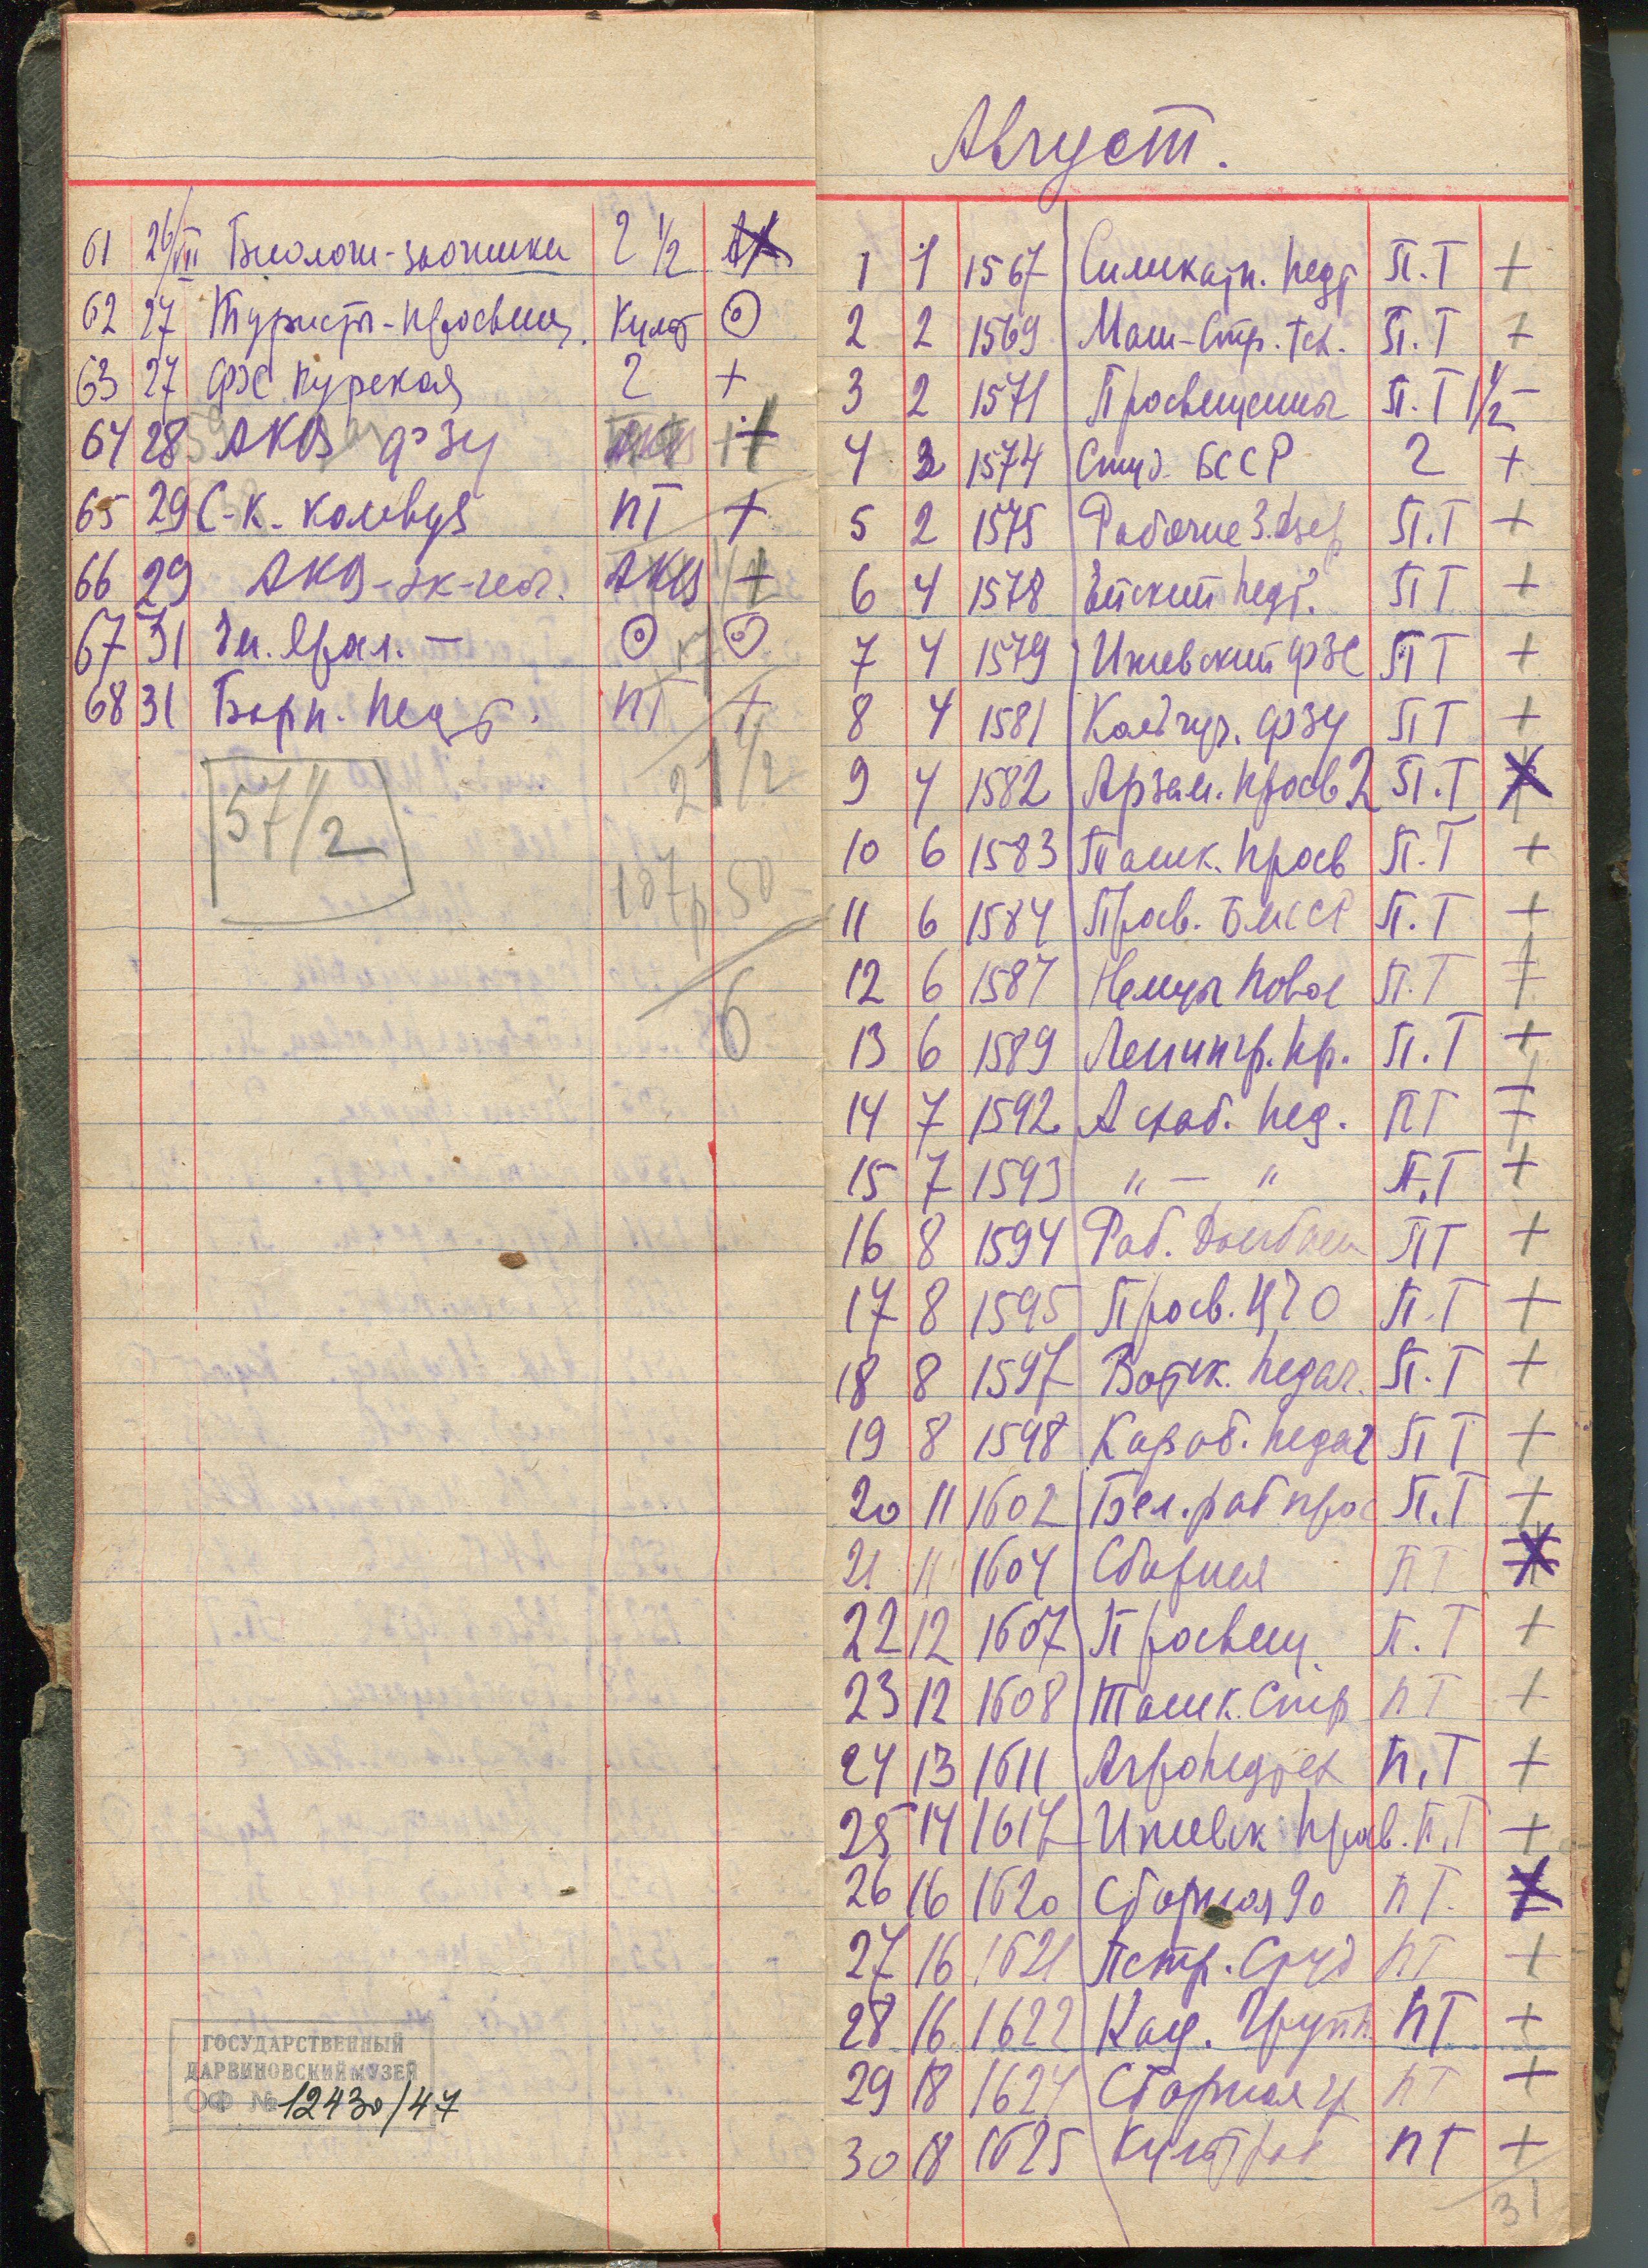 61 26/VII Биологи-заочники 2 1/2
62 27 Туристы-просвещ. Культ ⊙
63 27 ФЗС Курская 2 +
64 28 АКВ ФЗУ +
65 29 С-К. колвуз ПТ +
66 29 АКВ-эк-геог. АКВ +
67 31 ⊙ ⊙
68 31 Барн. педт. ПТ +
57 1/2
21 1/2
187р 50
6
ГОСУДАРСТВЕННЫЙ
ДАРВИНОВСКИЙ МУЗЕЙ
ОФ № 12430/47
Август.
1 1 1567 Силикатн. педт П.Т +
2 2 1569 Маш-Стр. тех. П.Т +
3 2 1571 Просвещенцы П.Т 1 1/2 -
4 3 1574 Студ. БССР 2 +
5 2 1575 Рабочие З. П.Т +
6 4 1578 Ейский педт. ПТ +
7 4 1579 Ижевский ФЗС ПТ +
8 4 1581 Кольчуг. ФЗУ ПТ +
9 4 1582 Арзам. просв 2 П.Т
10 6 1583 Ташк. просв П.Т +
11 6 1584 Просв. БМССР П.Т +
12 6 1587 Немцы Повол П.Т +
13 6 1589 Ленингр. пр. П.Т +
14 7 1592 Асхаб. пед. ПТ +
15 7 1593 " — " П.Т +
16 8 1594 Раб. Донбасс ПТ +
17 8 1595 Просв. ЦЧО П.Т +
18 8 1597 Вотск. педаг. П.Т +
19 8 1598 Караб. педаг ПТ +
20 11 1602 Бел. раб прос П.Т +
21 11 1604 Сборная ПТ
22 12 1607 Просвещ. П.Т +
23 12 1608 Ташк. Стр ПТ +
24 13 1611 Агропедтех П.Т +
25 14 1617 Ижевск просв. П.Т +
26 16 1620 Сборная 90 ПТ.
27 16 1621 Пстр. Студ ПТ +
28 16 1622 Кац. Групп ПТ +
29 18 1624 Сборная ПТ +
30 18 1625 Культраб ПТ +
31